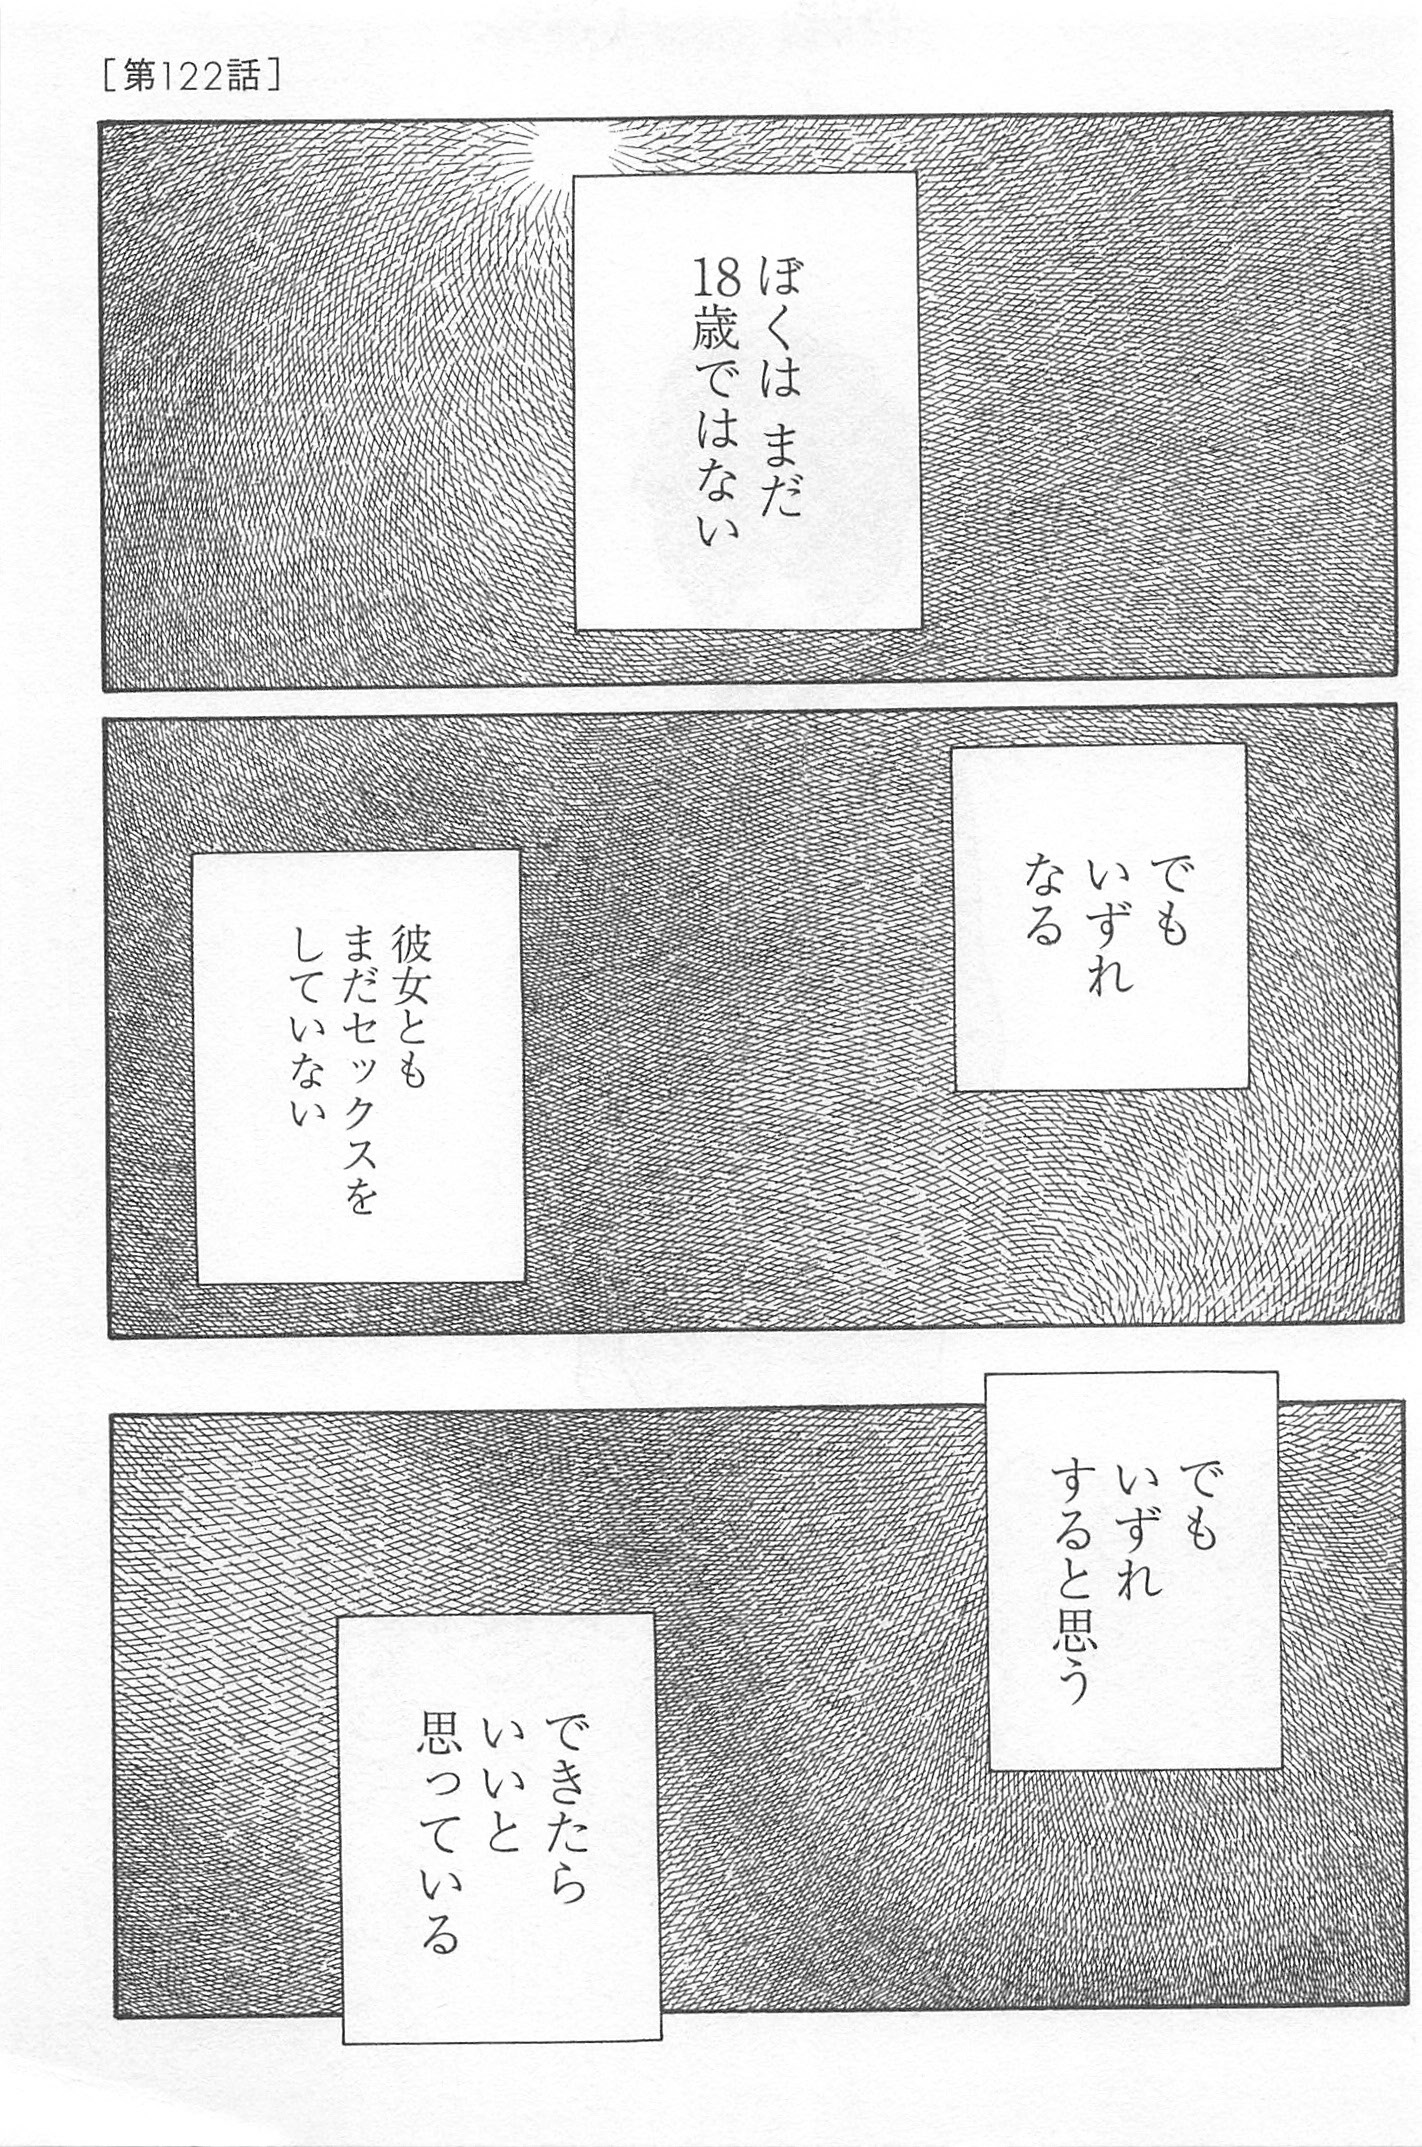 [第122話]
ぼくは まだ
18歳ではない
でも
いずれ
なる
彼女とも
まだセックスを
していない
でも
いずれ
すると思う
できたら
いいと
思っている